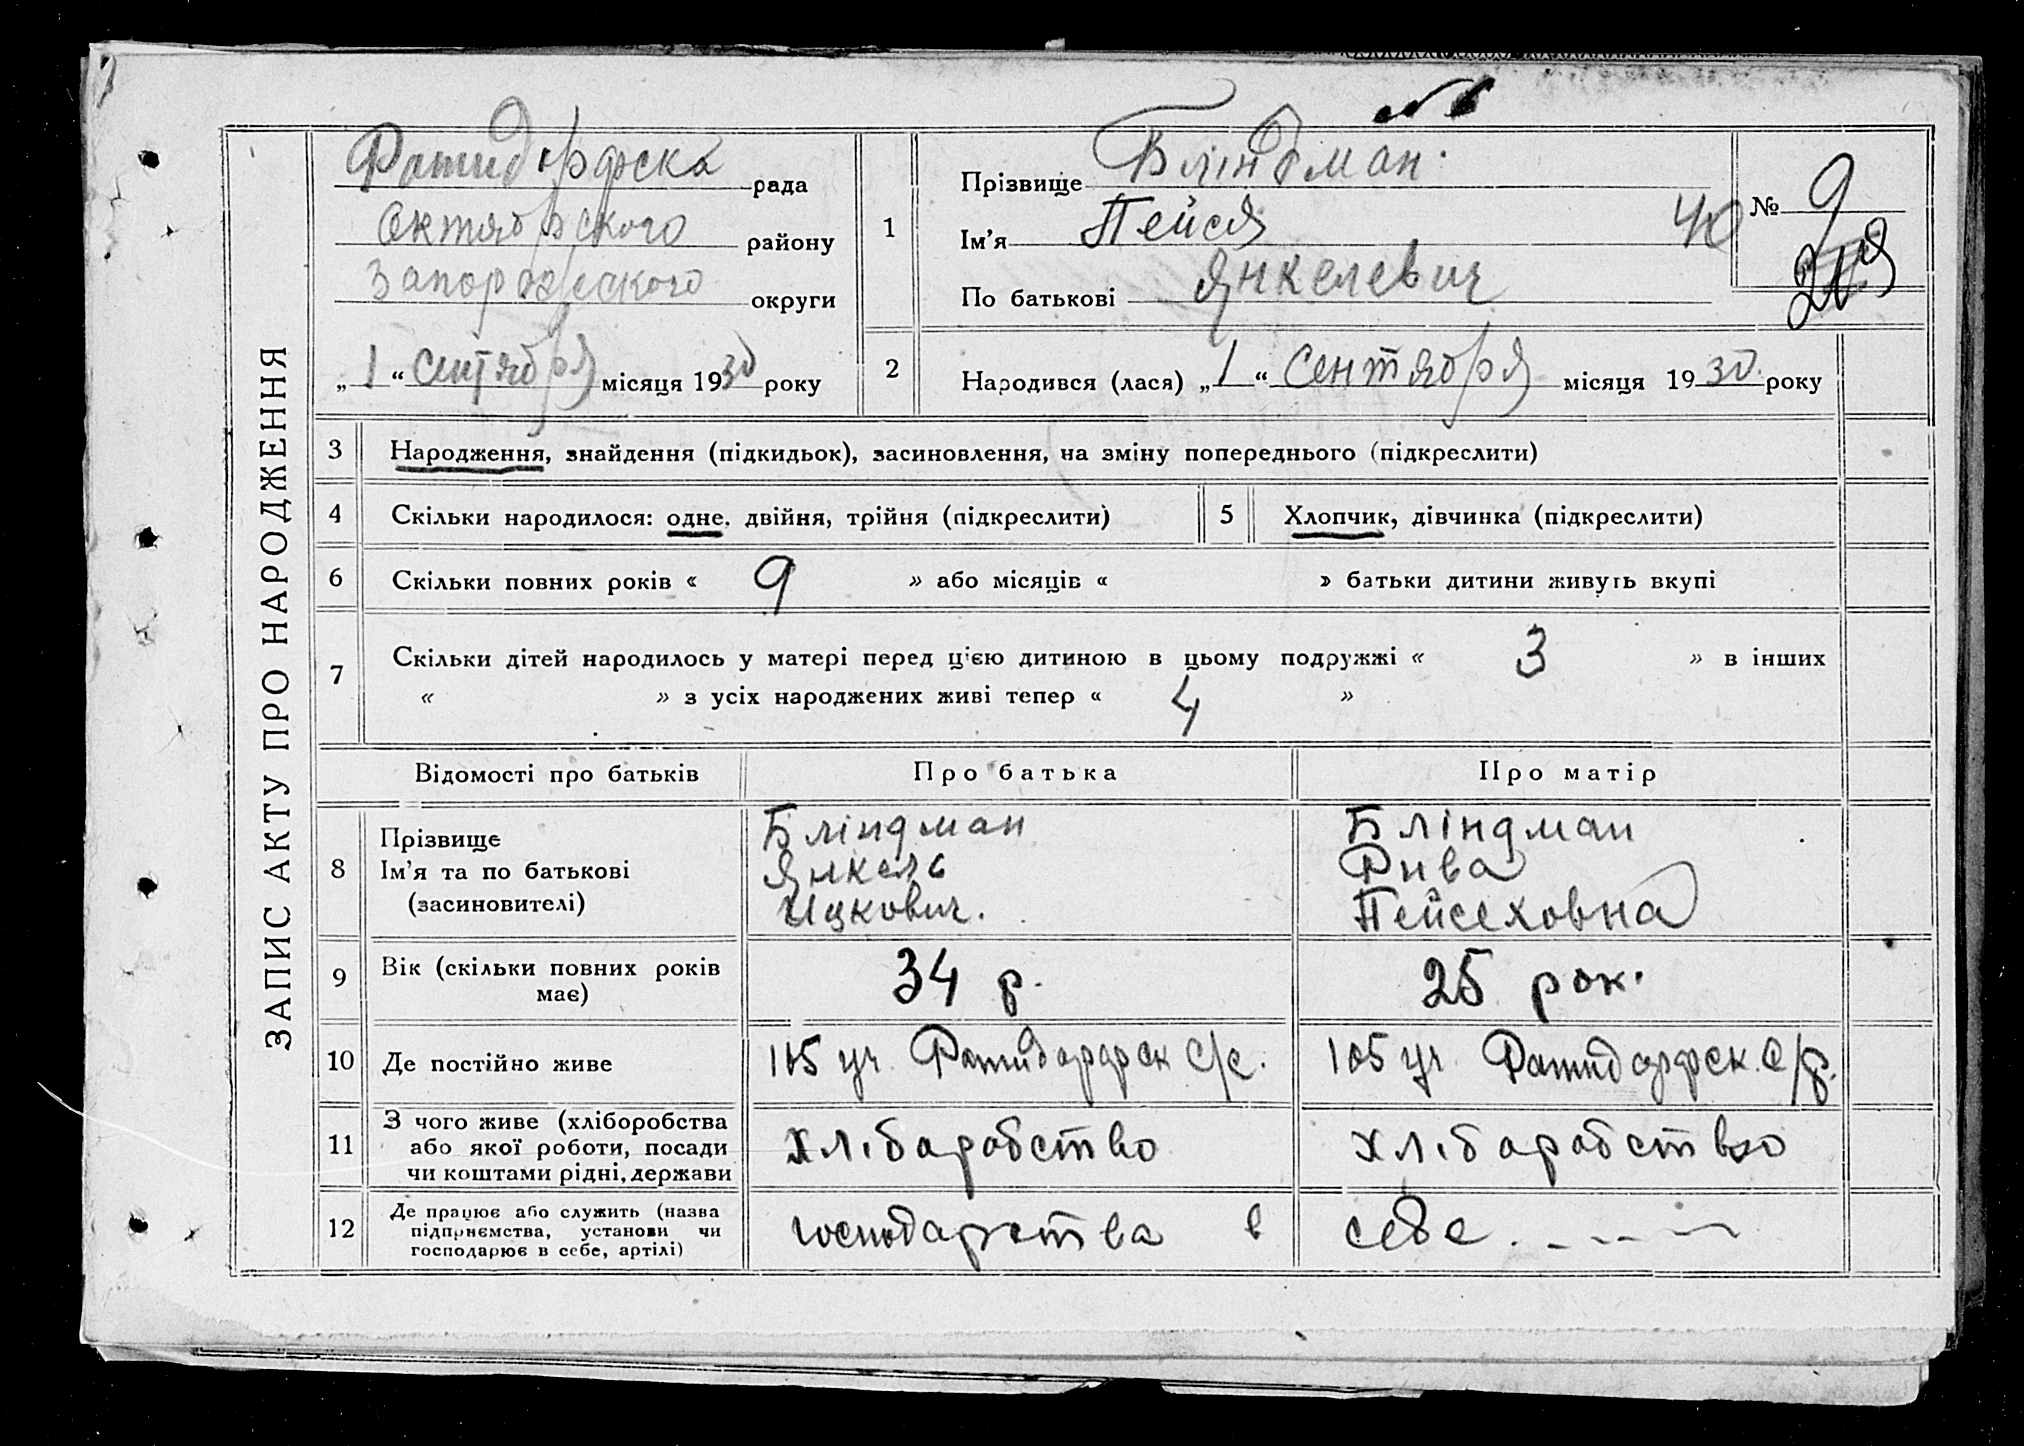 ЗАПИС АКТУ ПРО НАРОДЖЕННЯ
Ратндорфска рада
Октябрского району
Запорожского округи
„1“ Сентября місяця 1930 року
1
Прізвище Бліндман.
Ім'я Пейся
По батькові Янкелевич
40
№ 9
2
Народився (лася) „1“ Сентября місяця 1930 року
3 Народження, знайдення (підкидьок), засиновлення, на зміну попереднього (підкреслити)
4 Скільки народилося: одне, двійня, трійня (підкреслити)
5 Хлопчик, дівчинка (підкреслити)
6 Скільки повних років « 9 » або місяців « » батьки дитини живуть вкупі
7 Скільки дітей народилось у матері перед цією дитиною в цьому подружжі « 3 » в інших
« » з усіх народжених живі тепер « 4 »
Відомості про батьків Про батька Про матір
8
Прізвище
Ім'я та по батькові
(засиновителі)
Бліндман
Янкель
Ицкович.
Бліндман
Рива
Пейсеховна
9
Вік (скільки повних років
має)
34 р.
25 рок.
10 Де постійно живе
105 уч. Ратндорфск С/с.
105 уч. Ратндорфск. С/р.
11
З чого живе (хліборобства
або якої роботи, посади
чи коштами рідні, держави
хлібаробство
хлібаробство
12
Де працює або служить (назва
підприємства, установи чи
господарює в себе, артілі)
господарства в себе.